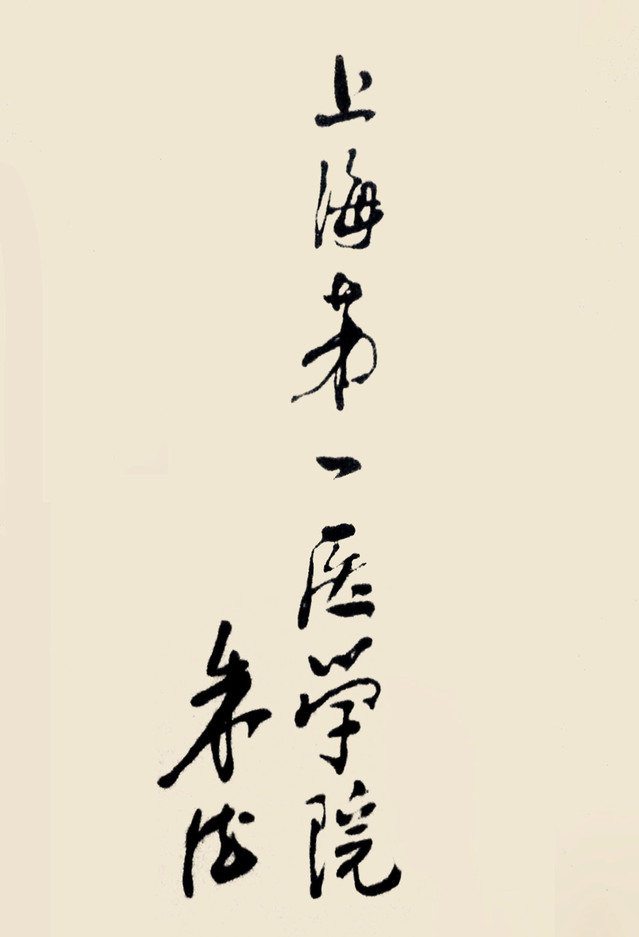 上海第一医学院
朱德